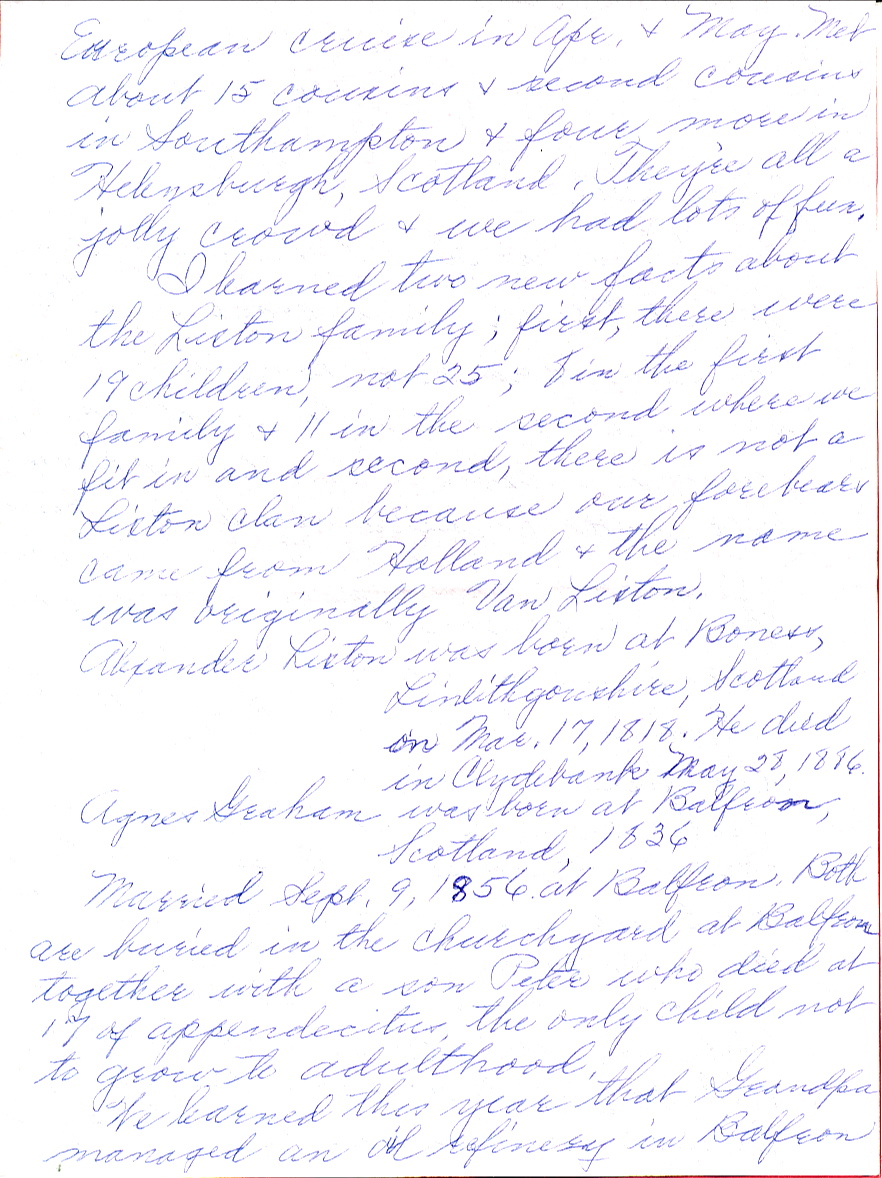 European cruise in Apr. & May. Met
about 15 cousins & second cousins
in Southampton & four more in
Helensburgh, Scotland. They're all a
jolly crowd & we had lots of fun.
I learned two new facts about
the Liston family; first, there were
19 children, not 25; 8 in the first
family & 11 in the second where we
fit in and second, there is not a
Liston clan because our forebears
came from Holland & the name
was originally Van Liston.
Alexander Liston was born at Boness,
Linlithgowshire, Scotland
on Mar. 17, 1818. He died
in Clydebank May 28, 1896.
Agnes Graham was born at Balfron,
Scotland, 1836
Married Sept. 9, 1856 at Balfron. Both
are buried in the churchyard at Balfron
together with a son Peter who died at
17 of appendecitus, the only child not
to grow to adulthood.
We learned this year that Grandpa
managed an oil refinery in Balfron